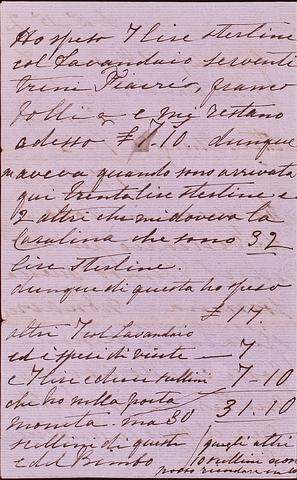 Ho speso 7 lire sterline
col Lavandaio serventi
treni Fiacrés, franco
bolli & e mi restano
adesso £ 10. dunque
aveva quando sono arrivata
qui trenta lire sterline e
2 altri che mi doveva la
Carolina che sono 32
lire sterline.
dunque di questa ho speso
£ 17.
altri 7 col Lavandaio
ed i spesi di vente — 7
e 7 lire e dieci scellini 7-10
che ho nella posta 31.10
moneta. ma 30
scellini di questi quegli altri
e del Bimbo scellini